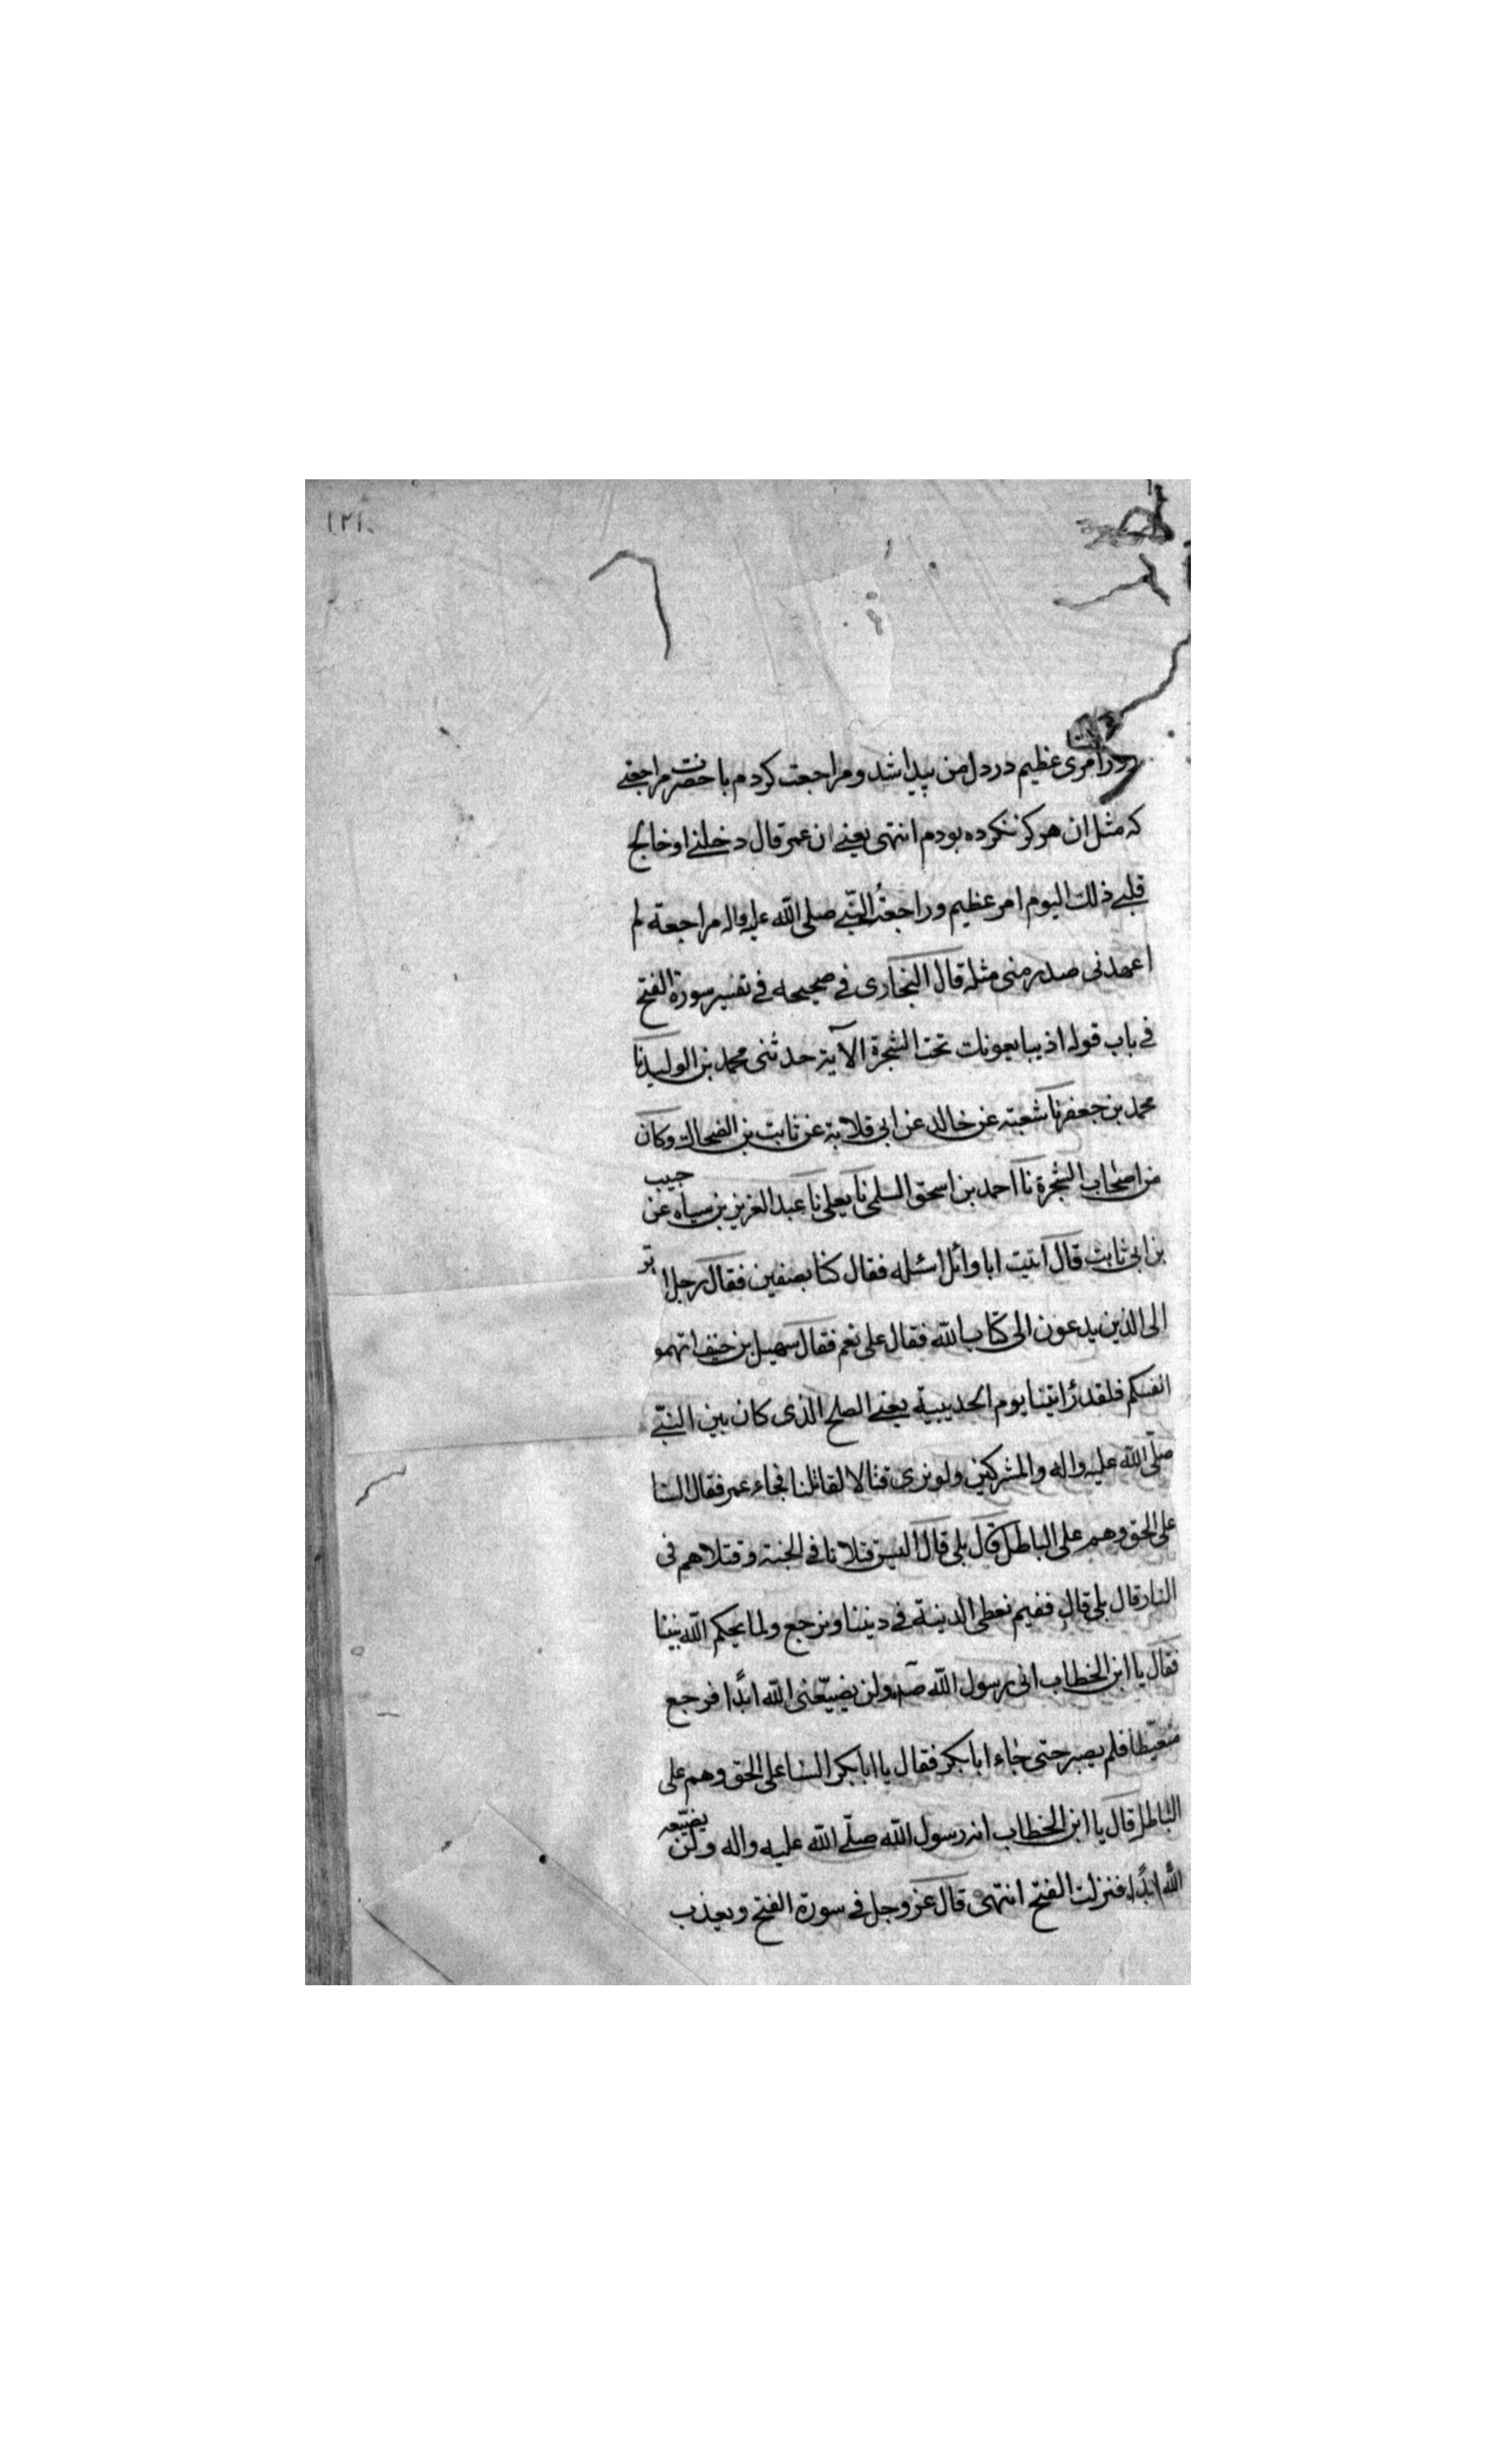 ١٢١٠
روز امری عظیم در دل من پیدا شد و مراجعت کردم با حضرت مراجعتی
که مثل ان هرکز نکرده بودم انتهی یعنی ان عمر قال دخلنی او خالج
قلبی ذلک الیوم امر عظیم و راجعت النبی صلی الله علیه واله مراجعة لم
اعهدنی صدر منی مثله قال البخاری فی صحیحه فی تفسیر سورة الفتح
فی باب قوله اذ یبایعونک تحت الشجرة الآیة حدثنی محمد بن الولید نا
محمد بن جعفر نا شعبة عن خالد عن ابی قلابة عن ثابت بن الضحاک وکان
من اصحاب الشجرة نا احمد بن اسحق السلمی نا یعلی نا عبد العزیز بن سیاه عن حبیب
بن ابی ثابت قال اتیت ابا وائل اسئله فقال کنا بصفین فقال رجل ا تر
الی الذین یدعون الی کتاب الله فقال علی نعم فقال سهیل بن حنیف اتهمو
انفسکم فلقد رأیتنا یوم الحدیبیة یعنی الصلح الذی کان بین النبی
صلّی الله علیه واله والمشرکین ولو نری قتالا لقاتلنا فجاء عمر فقال السنا
علی الحق وهم علی الباطل قال بلی قال الیس قتلانا فی الجنة و قتلاهم فی
النار قال بلی قال ففیم نعطی الدنیة فی دیننا ونرجع ولما یحکم الله بیننا
فقال یا ابن الخطاب انی رسول الله ولن یضیّعنی الله ابدًا فرجع
متغیّظا فلم یصبر حتی جاء ابا بکر فقال یا ابا بکر السنا علی الحق وهم علی
الباطل قال یا ابن الخطاب انه رسول الله صلّی الله علیه واله ولن یضیّعه
الله ابدًا فنزلت الفتح انتهی قال عز وجل فی سورة الفتح ویعذب